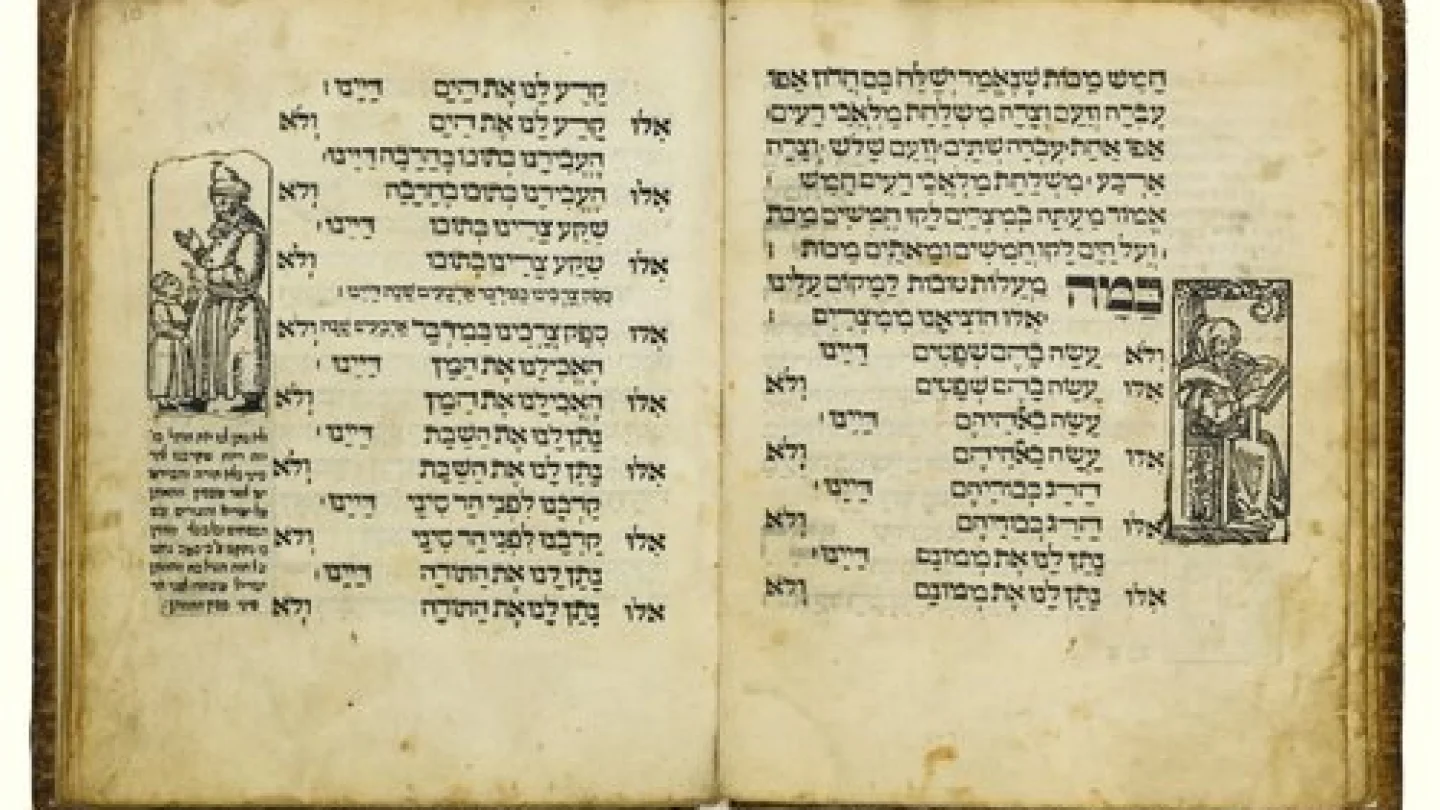 חָמֵשׁ מַכּוֹת שֶׁנֶּאֱמַר יְשַׁלַּח בָּם חֲרוֹן אַפּוֹ
עֶבְרָה וָזַעַם וְצָרָה מִשְׁלַחַת מַלְאֲכֵי רָעִים׃
אַפּוֹ אַחַת עֶבְרָה שְׁתַּיִם וָזַעַם שָׁלֹשׁ וְצָרָה
אַרְבַּע מִשְׁלַחַת מַלְאֲכֵי רָעִים חָמֵשׁ׃
אֱמוֹר מֵעַתָּה בְּמִצְרַיִם לָקוּ חֲמִשִּׁים מַכּוֹת
וְעַל הַיָּם לָקוּ חֲמִשִּׁים וּמָאתַיִם מַכּוֹת׃
כַּמָּה מַעֲלוֹת טוֹבוֹת לַמָּקוֹם עָלֵינוּ
אִלּוּ הוֹצִיאָנוּ מִמִּצְרַיִם׃
וְלֹא עָשָׂה בָהֶם שְׁפָטִים דַּיֵּנוּ
אִלּוּ עָשָׂה בָהֶם שְׁפָטִים וְלֹא
עָשָׂה בֵאלֹהֵיהֶם דַּיֵּנוּ׃
אִלּוּ עָשָׂה בֵאלֹהֵיהֶם וְלֹא
הָרַג בְּכוֹרֵיהֶם דַּיֵּנוּ׃
אִלּוּ הָרַג בְּכוֹרֵיהֶם וְלֹא
נָתַן לָנוּ אֶת מָמוֹנָם דַּיֵּנוּ׃
אִלּוּ נָתַן לָנוּ אֶת מָמוֹנָם וְלֹא
קָרַע לָנוּ אֶת הַיָּם דַּיֵּנוּ׃
אִלּוּ קָרַע לָנוּ אֶת הַיָּם וְלֹא
הֶעֱבִירָנוּ בְתוֹכוֹ בֶּחָרָבָה דַּיֵּנוּ׃
אִלּוּ הֶעֱבִירָנוּ בְתוֹכוֹ בֶּחָרָבָה וְלֹא
שִׁקַּע צָרֵינוּ בְּתוֹכוֹ דַּיֵּנוּ׃
אִלּוּ שִׁקַּע צָרֵינוּ בְּתוֹכוֹ וְלֹא
סִפֵּק צָרְכֵינוּ בַּמִּדְבָּר אַרְבָּעִים שָׁנָה דַּיֵּנוּ׃
אִלּוּ סִפֵּק צָרְכֵינוּ בַּמִּדְבָּר אַרְבָּעִים שָׁנָה וְלֹא
הֶאֱכִילָנוּ אֶת הַמָּן דַּיֵּנוּ׃
אִלּוּ הֶאֱכִילָנוּ אֶת הַמָּן וְלֹא
נָתַן לָנוּ אֶת הַשַּׁבָּת דַּיֵּנוּ׃
אִלּוּ נָתַן לָנוּ אֶת הַשַּׁבָּת וְלֹא
קֵרְבָנוּ לִפְנֵי הַר סִינַי דַּיֵּנוּ׃
אִלּוּ קֵרְבָנוּ לִפְנֵי הַר סִינַי וְלֹא
נָתַן לָנוּ אֶת הַתּוֹרָה דַּיֵּנוּ׃
אִלּוּ נָתַן לָנוּ אֶת הַתּוֹרָה וְלֹא